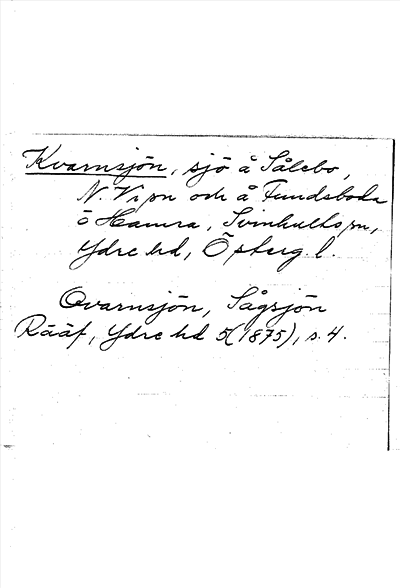 Kvarnsjön, sjö å Sålebo,
N. Vi sn och å Fundsboda
ö Hamra, Svinhults sn,
Ydre hd, Östberg l.
Qvarnsjön, Sågsjön
Rääf, Ydre hd 5 (1875), s. 4.